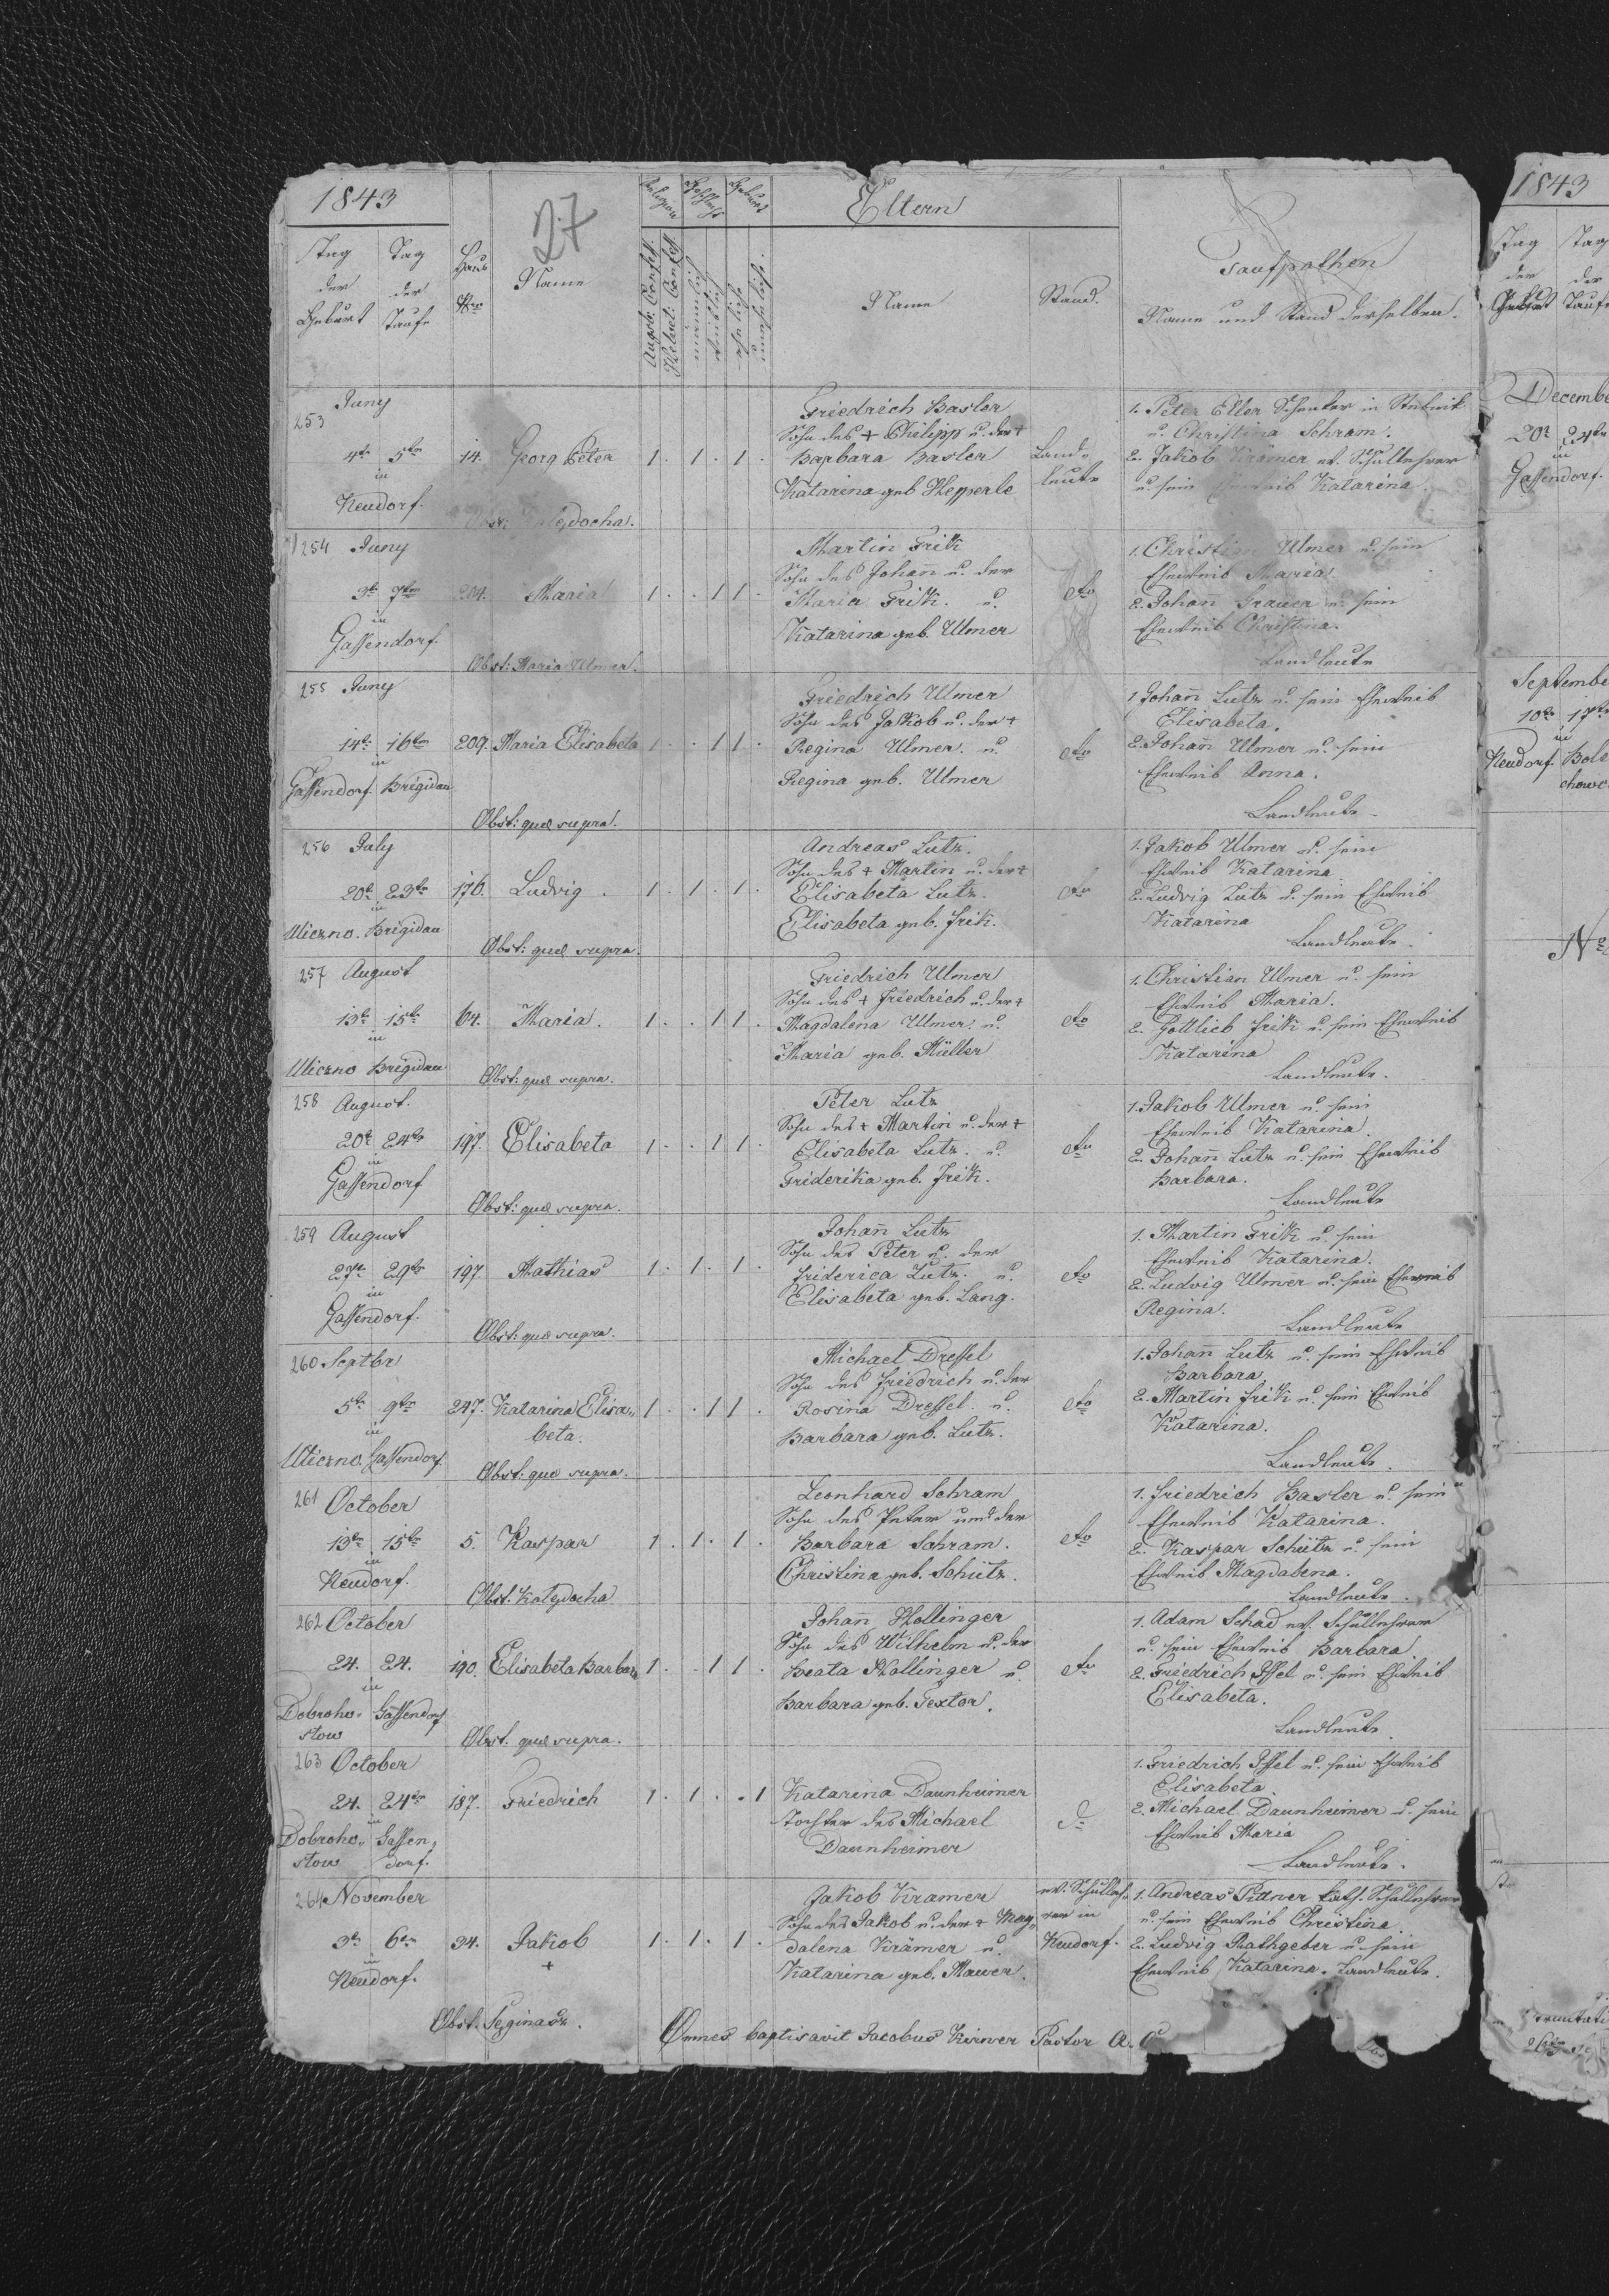 1843
27
Tag der Geburt
Tag der Taufe
Haus Nro
Name
Religion
Augsb. Confess.
Helvet. Confess.
Geschlecht
männlich
weiblich
Geburt
ehelich
unehelich
Eltern
Name
Stand.
Taufpathen
Name und Stand derselben.
253 Juny
4te 5ten
in
Neudorf.
14. Georg Peter 1. 1. 1.
Friedrich Basler
Sohn des + Philipp u. der +
Barbara Basler
Katarina geb. Hepperle
Landleute
1. Peter Eller Schenker in Stebnik
u. Christina Schram.
2. Jakob Krämer ev. Schullehrer
u. sein Eheweib Katarina.
254 Juny
3te 7ten
in
Gassendorf.
204. Maria 1. . 1 1.
Martin Frik
Sohn des Johañ u. der
Maria Frik. u.
Katarina geb. Ulmer
dto
1. Christian Ulmer u. sein
Eheweib Maria.
2. Johañ Grauer u. sein
Eheweib Christina.
Landleute
Obst: Maria Ulmer.
255 Juny
14te 16ten
in
Gassendorf Brigidau
209. Maria Elisabeta 1. . 1 1.
Friedrich Ulmer
Sohn des Jakob u. der +
Regina Ulmer. u.
Regina geb. Ulmer
dto
1 Johañ Lutz u. sein Eheweib
Elisabeta.
2. Johañ Ulmer u. sein
Eheweib Anna.
Landleute.
Obst: quæ supra.
256 July
20te 23ten
in
Uliczno. Brigidau
176. Ludvig. 1. 1. 1.
Andreas Lutz.
Sohn des + Martin u. der +
Elisabeta Lutz.
Elisabeta geb. Frik.
dto
1. Jakob Ulmer u. sein
Eheweib Katarina.
2. Ludvig Lutz u. sein Eheweib
Katarina
Landleute.
Obst: quæ supra.
257 August
13te 15te
in
Uliczno Brigidau
64. Maria. 1. . 1 1.
Friedrich Ulmer
Sohn des + Friedrich u. der +
Magdalena Ulmer. u.
Maria geb. Müller
dto
1. Christian Ulmer u. sein
Eheweib Maria.
2. Gottlieb Frik u. sein Eheweib
Katarina
Landleute.
Obst: quæ supra.
258 August.
20te 24te
in
Gassendorf
197. Elisabeta 1. . 1 1.
Peter Lutz
Sohn des + Martin u. der +
Elisabeta Lutz. u.
Friderika geb. Frik.
dto
1. Jakob Ulmer u. sein
Eheweib Katarina.
2. Johañ Lutz u. sein Eheweib
Barbara.
Landleute
Obst: quæ supra.
259 August
27te 29te
in
Gassendorf.
197. Mathias 1. 1. 1.
Johañ Lutz
Sohn des Peter u. der
Friderica Lutz. u.
Elisabeta geb. Lang.
dto
1. Martin Frik u. sein
Eheweib Katarina.
2. Ludvig Ulmer u. sein Eheweib
Regina.
Landleute
Obst: quæ supra.
260 Septbr
5te 9te
in
Uliczno. Gassendorf
247. Katarina Elisabeta. 1. . 1 1.
Michael Dressel
Sohn des Friedrich u. der
Rosina Dressel. u.
Barbara geb. Lutz.
dto
1. Johañ Lutz u. sein Eheweib
Barbara.
2. Martin Frik u. sein Eheweib
Katarina.
Landleute.
Obst: quæ supra.
261 October
13te 15te
in
Neudorf.
5. Kaspar 1. 1. 1.
Leonhard Schram
Sohn des Peter und der
Barbara Schram.
Christina geb. Schütz.
dto
1. Friedrich Basler u. sein
Eheweib Katarina.
2. Kaspar Schütz u. sein
Eheweib Magdalena.
Landleute.
Obst. Kolejdocha
262 October
24. 24.
in
Dobrohostow Gassendorf
190. Elisabeta Barbara 1. . 1 1.
Johañ Hollinger
Sohn des Wilhelm u. der
Beata Hollinger u.
Barbara geb. Textor.
dto
1. Adam Schad ev. Schullehrer
u. sein Eheweib Barbara
2. Friedrich Issel u. sein Eheweib
Elisabeta.
Landleute.
Obst. quæ supra.
263 October
24. 24ten
in
Dobrohostow Gassendorf.
187. Friedrich 1. 1. . 1
Katarina Daunheimer
Tochter des Michael
Daunheimer
1. Friedrich Issel u. sein Eheweib
Elisabeta
2. Michael Daunheimer u. sein
Eheweib Maria
Landleute.
264 November
3te 6ten
in
Neudorf.
34. Jakob + 1. 1. 1.
Jakob Kramer
Sohn des Jakob u. der + Magdalena Krämer u.
Katarina geb. Mauer.
ev. Schullehrer in
Neudorf.
1. Andreas Pittner kath. Schullehrer
u. sein Eheweib Christina.
2. Ludvig Rathgeber u. sein
Eheweib Katarina. Landleute.
Omnes baptisavit Jacobus Kirner Pastor A. C.
1843
Tag der Geburt
Tag der Taufe
December
20t 24ten
in
Gassendorf.
September
10te 17te
in
Neudorf. Bolechow